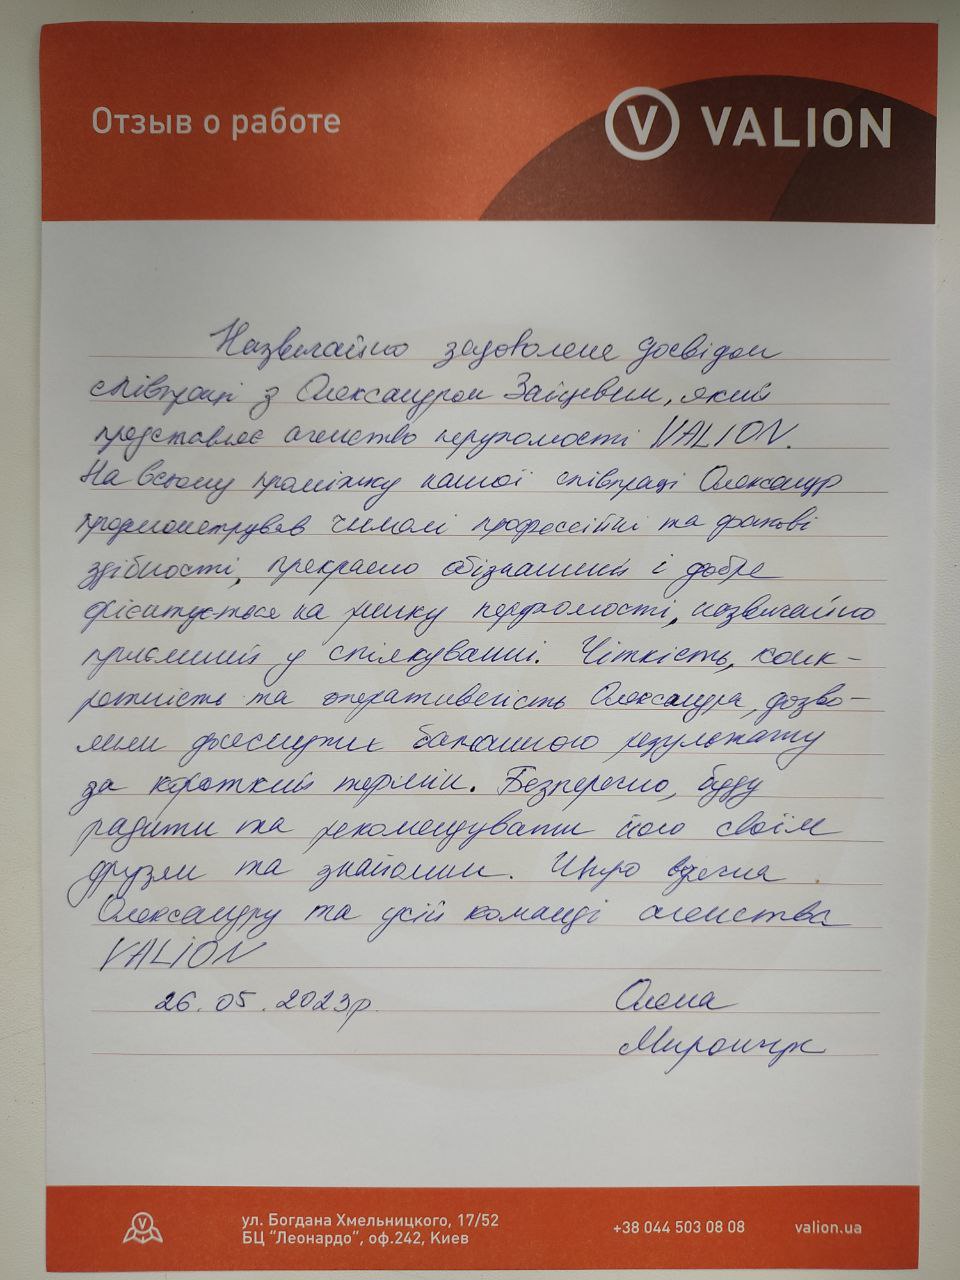 Отзыв о работе
VALION
Назвичайно задоволена досвідом
співпраці з Олександром Зайцевим, який
представляє агенство нерухомості VALION.
На всьому проміжку нашої співпраці Олександр
продемонстрував чималі професійні та фахові
здібності, прекрасно обізнаний і добре
орієнтується на ринку нерухомості, назвичайно
приємний у спілкуванні. Чіткість, конк-
ретність та оперативність Олександра, дозво-
лили досягнути бажаного результату
за короткий термін. Безперечно, буду
радити та рекомендувати його своїм
друзям та знайомим. Щиро вдячна
Олександру та усій команді агенства
VALION
26.05.2023р.
Олена
Мирончук
ул. Богдана Хмельницкого, 17/52
БЦ "Леонардо", оф.242, Киев
+38 044 503 08 08
valion.ua